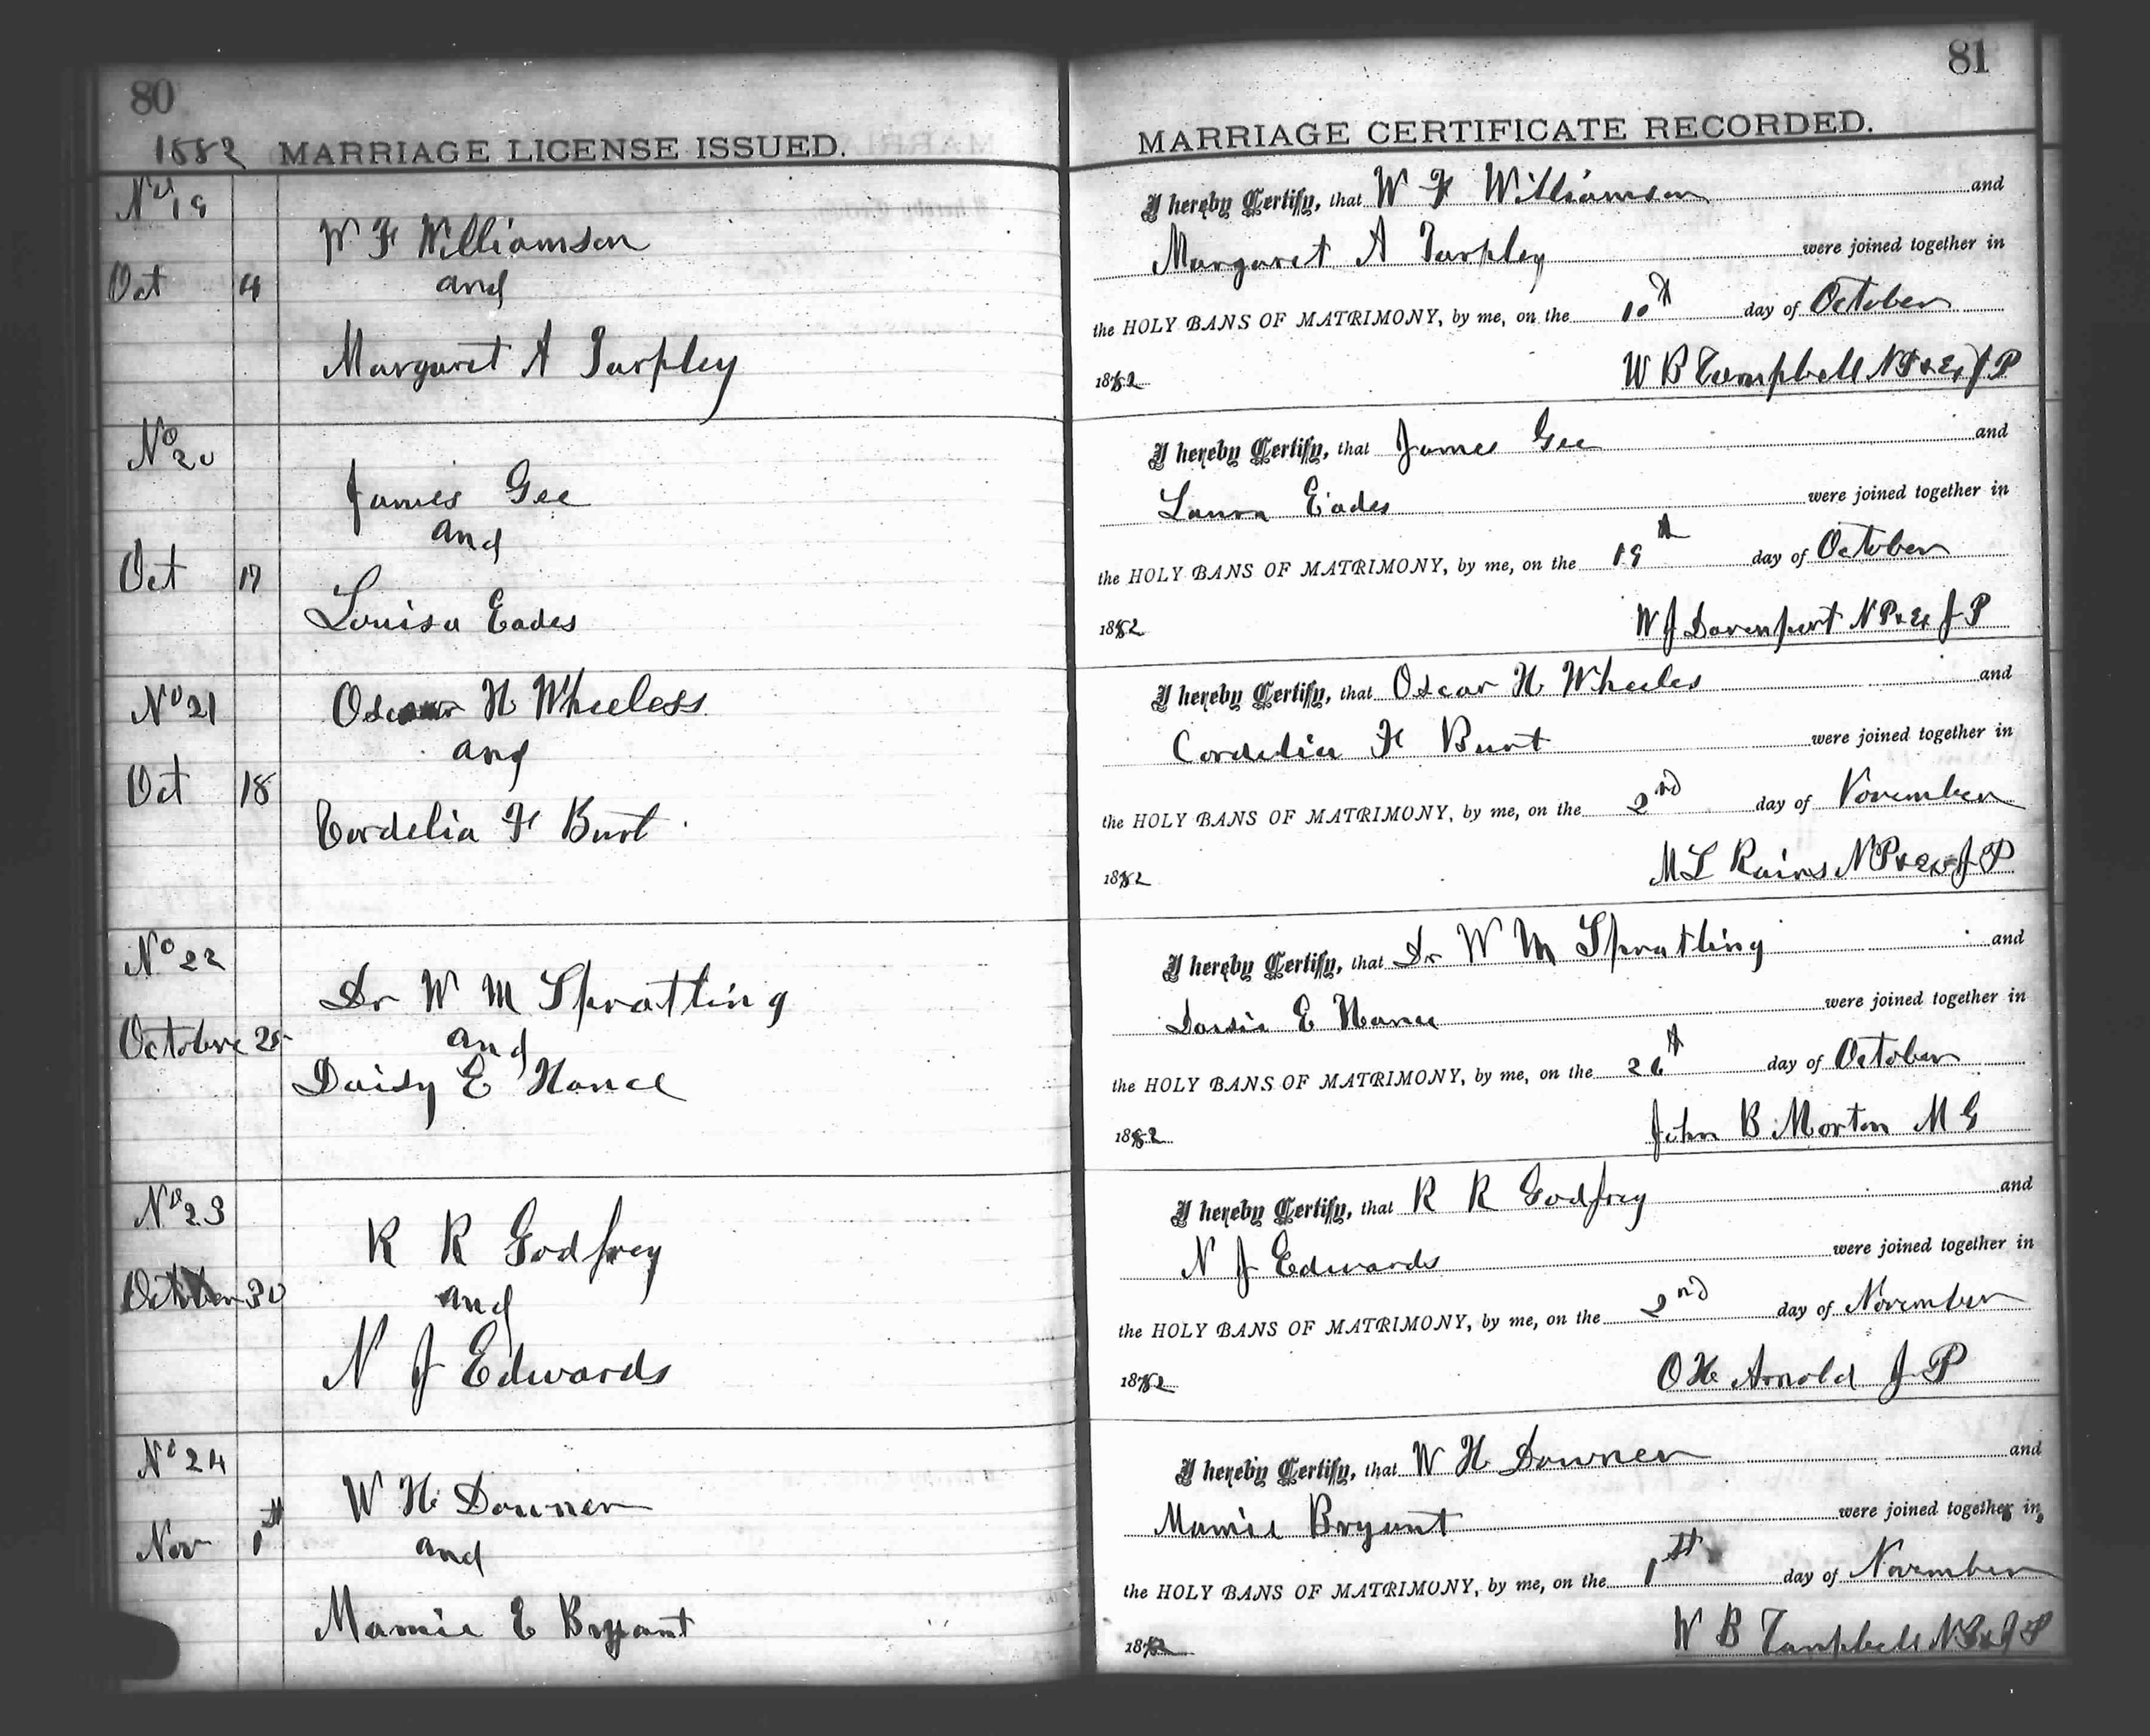 80
1882 MARRIAGE LICENSE ISSUED.
No 19
W H Williamson
Oct 4 and
Margaret A Tarpley
No 20
James Gee
and
Oct 17
Louisa Eades
No 21 Oscar H Wheeless
and
Oct 18
Cordelia H Burt
No 22
Dr W M Spratling
Octobre 25 and
Daisy E Nance
No 23
R R Godfrey
October 30 and
N J Edwards
No 24
W H Downer
Nov 1st and
Mamie E Bryant
81
MARRIAGE CERTIFICATE RECORDED.
I hereby Certify, that W H Williamson and
Margaret A Tarpley were joined together in
the HOLY BANS OF MATRIMONY, by me, on the 10th day of October
1882 W B Campbell N P & Ex J P
I hereby Certify, that James Gee and
Laura Eades were joined together in
the HOLY BANS OF MATRIMONY, by me, on the 19th day of October
1882 W J Davenport N P & Ex J P
I hereby Certify, that Oscar H Wheeles and
Cordelia H Burt were joined together in
the HOLY BANS OF MATRIMONY, by me, on the 2nd day of November
1882 M L Rains N P & Ex J P
I hereby Certify, that Dr W M Spratling and
E Nance were joined together in
the HOLY BANS OF MATRIMONY, by me, on the 26th day of October
1882 John B Morton M G
I hereby Certify, that R R Godfrey and
N J Edwards were joined together in
the HOLY BANS OF MATRIMONY, by me, on the 2nd day of November
1882 O H Arnold J P
I hereby Certify, that W H Downer and
Mamie Bryant were joined together in
the HOLY BANS OF MATRIMONY, by me, on the 1st day of November
1882 W B Campbell N P & J P